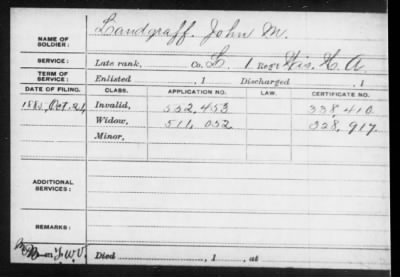 NAME OF SOLDIER: Landgraff, John M.
SERVICE: Late rank, Co. L. 1 Reg't Wis. H. A.
TERM OF SERVICE: Enlisted , 1 Discharged , 1
DATE OF FILING. CLASS. APPLICATION NO. LAW. CERTIFICATE NO.
1885, Oct. 24 Invalid, 552,453 338,410
Widow, 511,052 328,917
Minor,
ADDITIONAL SERVICES:
REMARKS:
Died , 1 , at